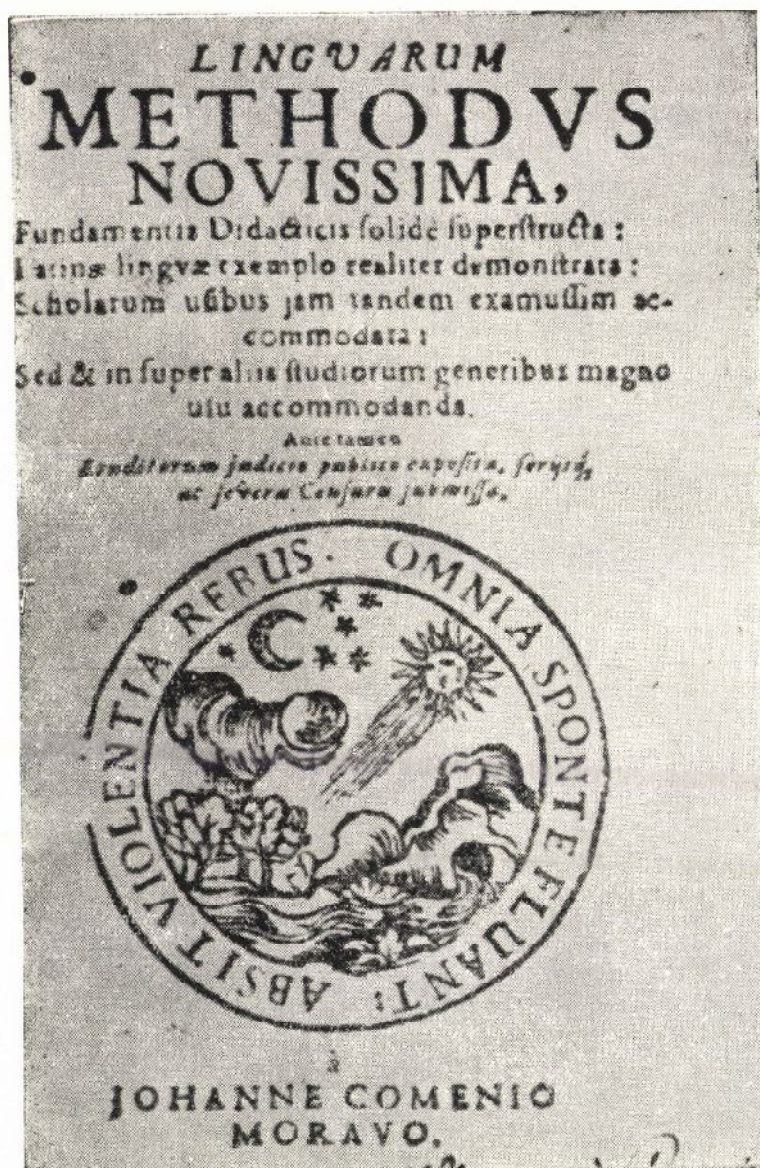 LINGUARUM
METHODVS
NOVISSIMA,
Fundamentis Didacticis solidè superstructa:
Latinæ lingvæ exemplo realiter demonstrata:
Scholarum usibus jam tandem examussim ac-
commodata:
Sed & in super aliis studiorum generibus magno
usu accommodanda.
Ante tamen
Eruditorum judicio publico exposita, seriisq́;
ac severæ Censuræ submissa,
OMNIA SPONTE FLUANT: ABSIT VIOLENTIA REBUS.
à
JOHANNE COMENIO
MORAVO.